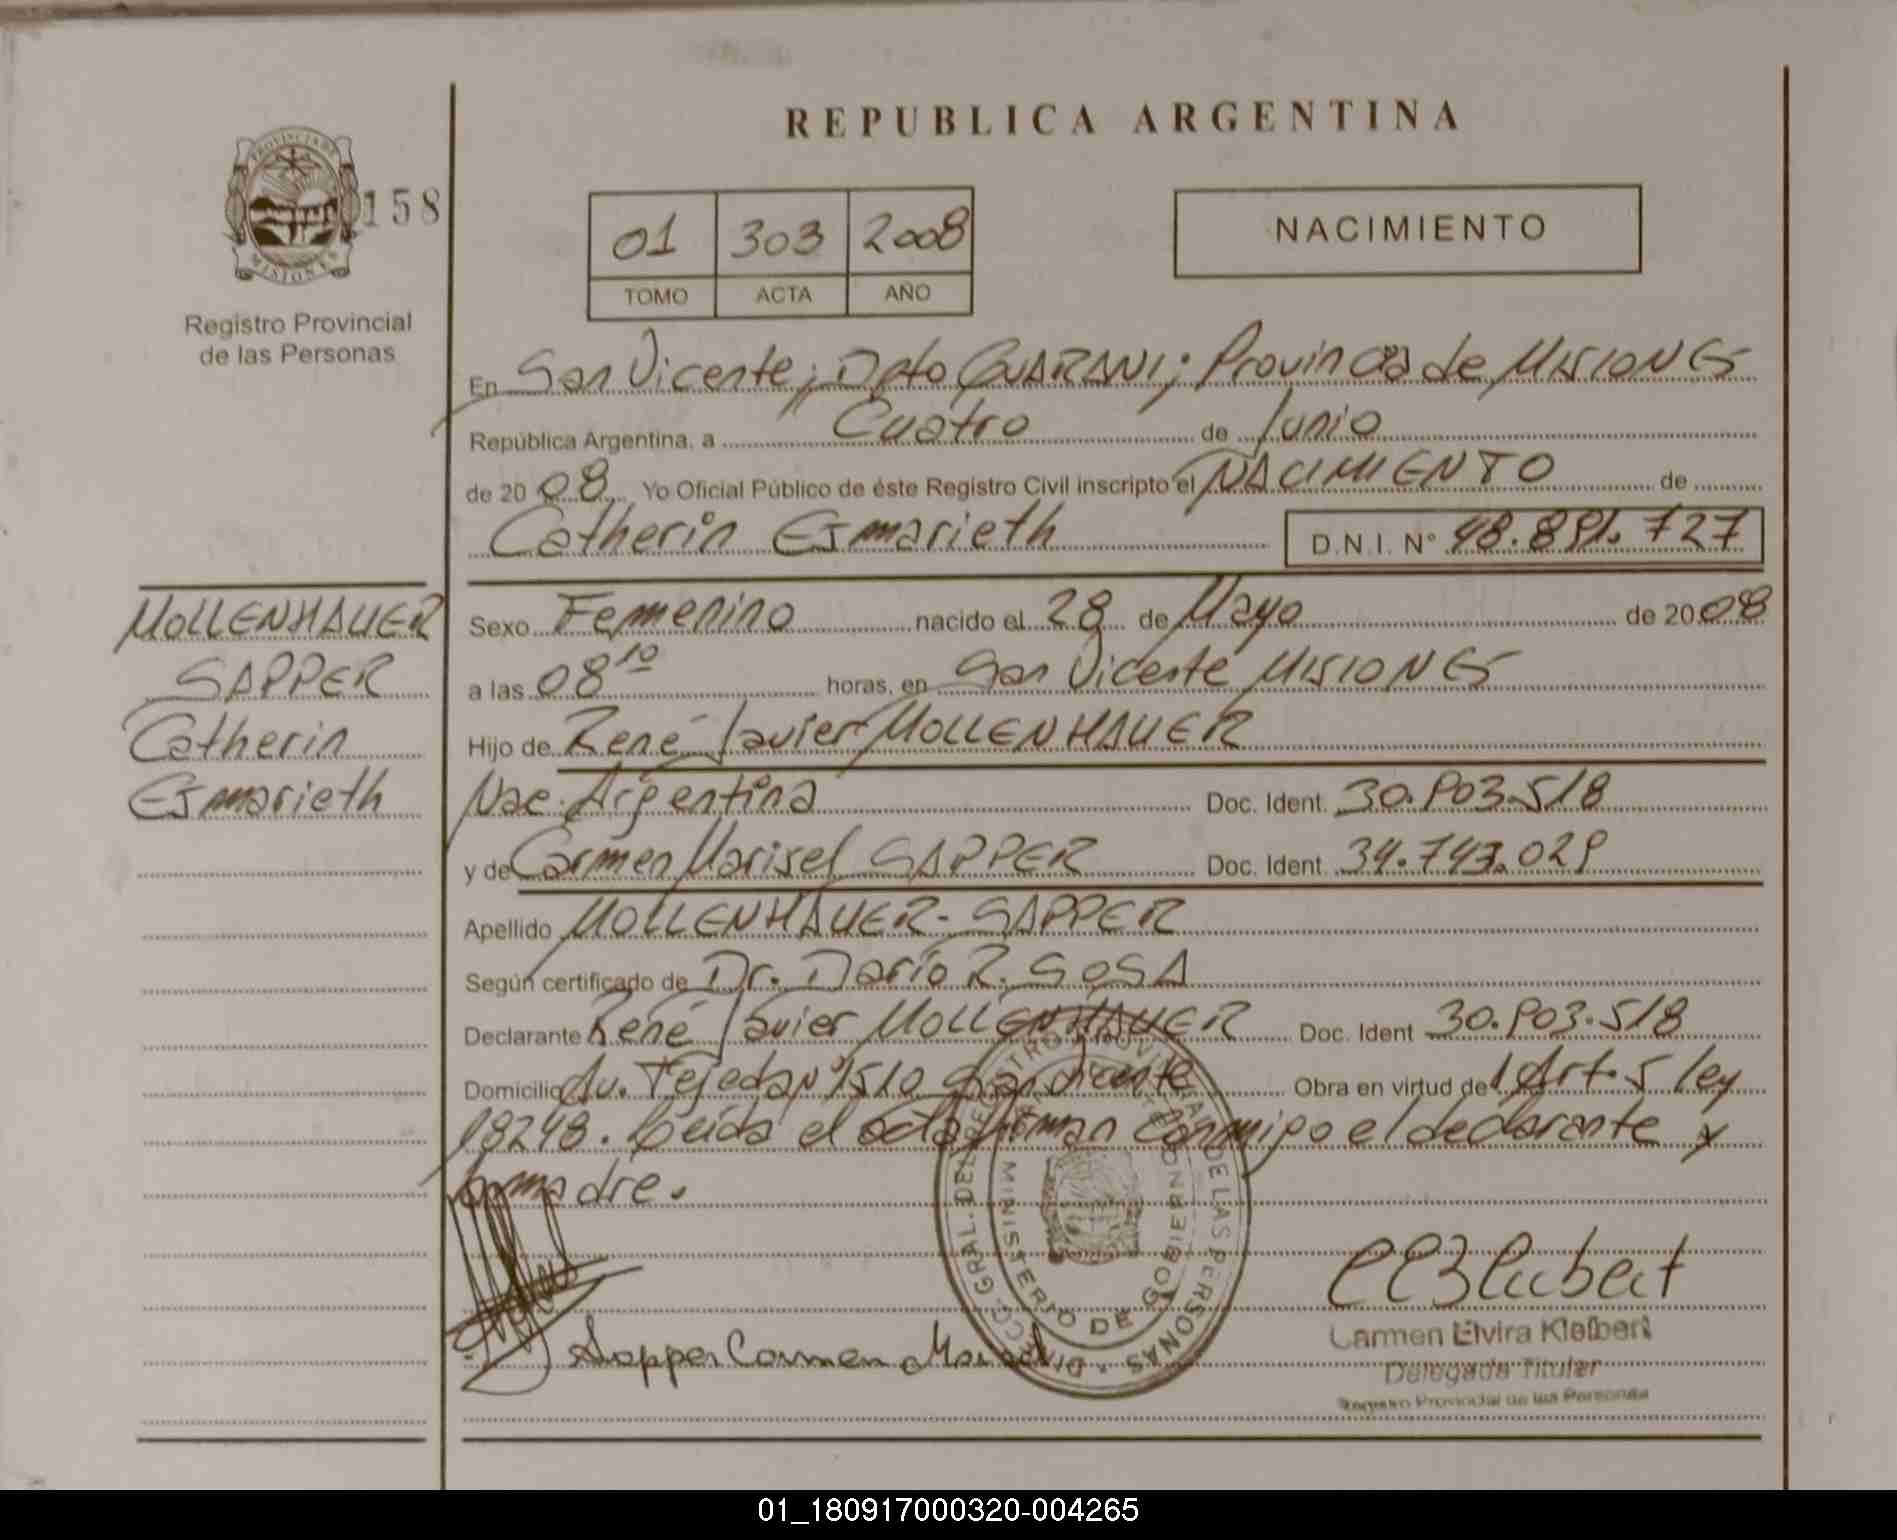 REPUBLICA ARGENTINA
PROVINCIA DE
MISIONES
158
Registro Provincial
de las Personas
01 303 2008
TOMO ACTA AÑO
NACIMIENTO
En San Vicente; Dpto GUARANI; Provincia de MISIONES
República Argentina, a Cuatro de Junio
de 2008 Yo Oficial Público de éste Registro Civil inscripto el NACIMIENTO de
Catherin Esmarieth D.N.I. Nº 48.891.727
MOLLENHAUER
SAPPER
Catherin
Esmarieth
Sexo Femenino nacido el 28 de Mayo de 2008
a las 08 10 horas, en San Vicente MISIONES
Hijo de René Javier MOLLENHAUER
Nac. Argentina Doc. Ident. 30.903.518
y de Carmen Marisel SAPPER Doc. Ident. 34.743.029
Apellido MOLLENHAUER - SAPPER
Según certificado de Dr. Darío R. SOSA
Declarante René Javier MOLLENHAUER Doc. Ident 30.903.518
Domicilio Av. Tejeda Nº 1510 San Vicente Obra en virtud de Art. 5 ley
18248. Leída el acta firman conmigo el declarante y
la madre.
Sapper Carmen Marisel
DIRECC. GRAL. DEL REGISTRO PROVINCIAL DE LAS PERSONAS
MINISTERIO DE GOBIERNO
Carmen Elvira Kleibert
Delegada Titular
Registro Provincial de las Personas
01_180917000320-004265